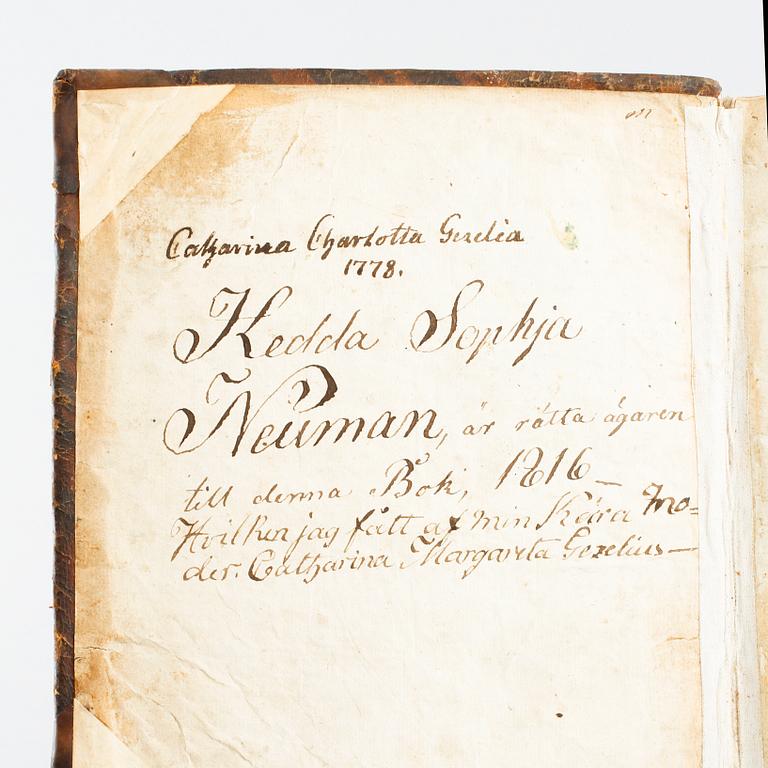 Catharina Charlotta Gezelia
1778.
Hedda Sophja
Neuman, är rätta ägaren
till denna Bok, 1816 —
Hvilken jag fått af min Kära Mo=
der. Catharina Margareta Gezelius —